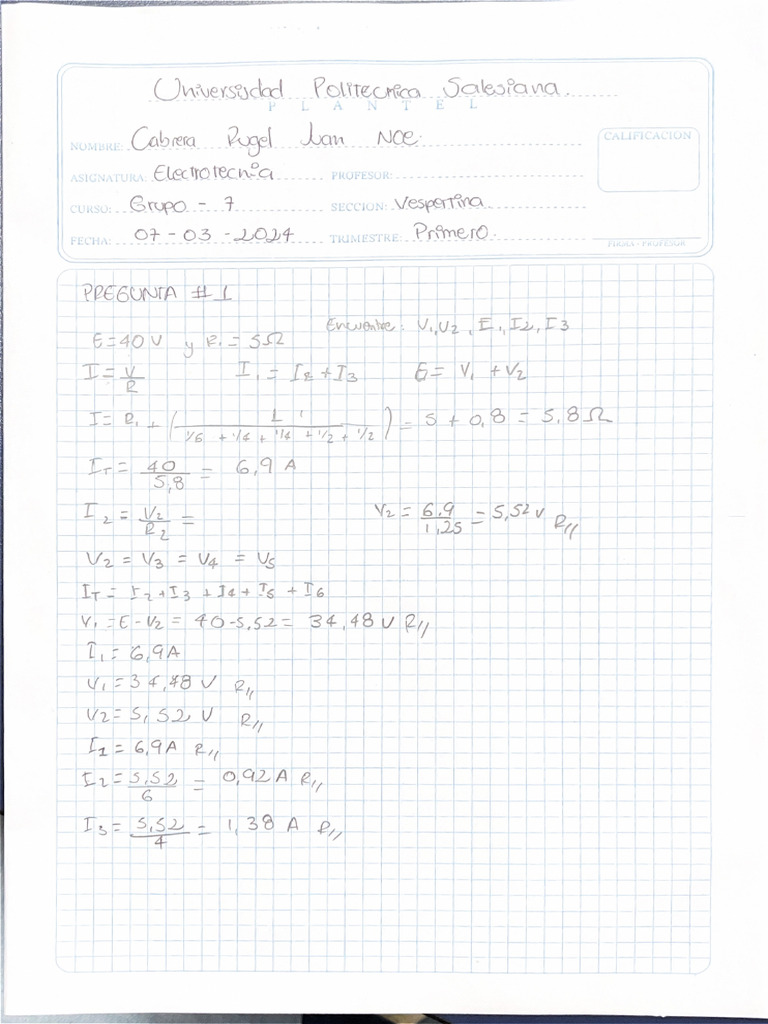 Universidad Politecnica Salesiana
PLANTEL
NOMBRE: Cabrera Rugel Juan Noe.
CALIFICACION
ASIGNATURA: Electrotecnia PROFESOR:
CURSO: Grupo - 7 SECCION: Vespertina
FECHA: 07 - 03 - 2024 TRIMESTRE: Primero.
FIRMA - PROFESOR
PREGUNTA #1
E = 40 V y R₁ = 5Ω Encuentre: V₁, V₂, I₁, I₂, I₃
I = V/R I₁ = I₂ + I₃ E = V₁ + V₂
I = R₁ + (1/(1/6 + 1/4 + 1/4 + 1/2 + 1/2)) = 5 + 0,8 = 5,8 Ω
I_T = 40/5,8 = 6,9 A
I₂ = V₂/R₂ = V₂ = 6.9/1,25 = 5,52 V R//
V₂ = V₃ = V₄ = V₅
I_T = I₂ + I₃ + I₄ + I₅ + I₆
V₁ = E - V₂ = 40 - 5,52 = 34,48 V R//
I₁ = 6,9 A
V₁ = 34,48 V R//
V₂ = 5,52 V R//
I₁ = 6,9 A R//
I₂ = 5,52/6 = 0,92 A R//
I₃ = 5,52/4 = 1,38 A R//